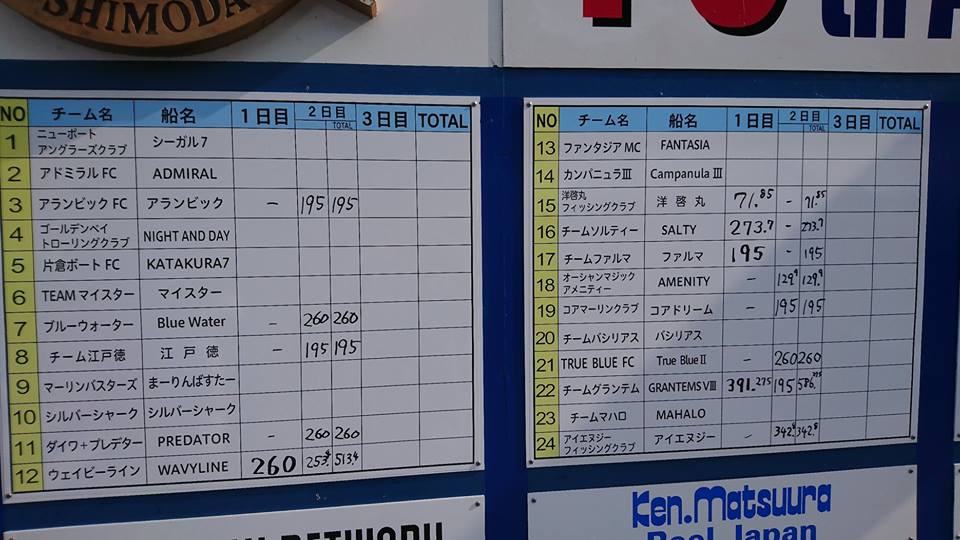 SHIMODA
NO チーム名 船名 1日目 2日目 TOTAL 3日目 TOTAL
1 ニューポート アングラーズクラブ シーガル7
2 アドミラルFC ADMIRAL
3 アランビックFC アランビック - 195 195
4 ゴールデンベイ トローリングクラブ NIGHT AND DAY
5 片倉ボートFC KATAKURA7
6 TEAMマイスター マイスター
7 ブルーウォーター Blue Water - 260 260
8 チーム江戸徳 江戸徳 - 195 195
9 マーリンバスターズ まーりんばすたー
10 シルバーシャーク シルバーシャーク
11 ダイワ+プレデター PREDATOR - 260 260
12 ウェイビーライン WAVYLINE 260 253.4 513.4
NO チーム名 船名 1日目 2日目 TOTAL 3日目 TOTAL
13 ファンタジアMC FANTASIA
14 カンパニュラⅢ Campanula Ⅲ
15 洋啓丸 フィッシングクラブ 洋啓丸 71.85 - 71.85
16 チームソルティー SALTY 273.7 - 273.7
17 チームファルマ ファルマ 195 - 195
18 オーシャンマジック アメニティー AMENITY - 129.9 129.9
19 コアマーリンクラブ コアドリーム - 195 195
20 チームバシリアス バシリアス
21 TRUE BLUE FC True BlueⅡ - 260 260
22 チームグランテム GRANTEMS Ⅷ 391.275 195 586.275
23 チームマハロ MAHALO
24 アイエヌジー フィッシングクラブ アイエヌジー - 342.8 342.8
Ken.Matsuura
Reel Japan